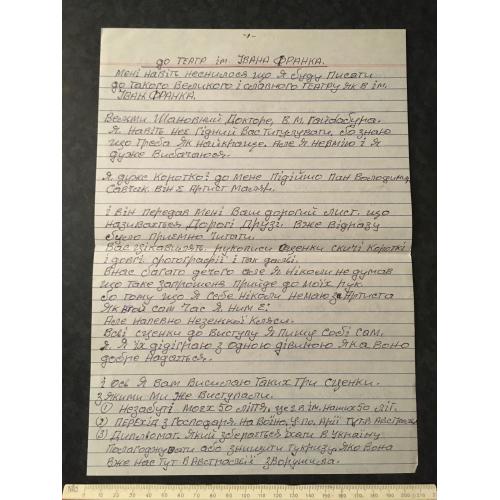 -1-
до ТЕАТР ім ІВАНА ФРАНКА.
Мені навіть неснилося що Я буду Писати
до Такого Великого і славного ТЕАТРУ як в ім.
ІВАН ФРАНКА.
Вельми Шановний Докторе, В.М. Гайдабура.
Я навіть неє гідний Вас Титулувати, бо знаю
що Треба як найкраще. Але Я невмію і Я
дуже Вибачаюся.
Я дуже Коротко і до мене Підійшло Пан Володимир
Савчак. Він Є Артист Маляр.
і він передав мені Ваш дорогий лист. що
називається Дорогі Друзі. Вже відразу
було Приємно Читати.
Вас зікавлять рукописи сценки скичі Короткі
і довгі фотографії і так далі.
Внас багато дечого але Я ніколи не думав
що таке запрошеня прийде до моїх рук.
Бо тому що Я себе ніколи немаю за Артиста
Як в той сам Час Я ним Є.
Але напевно незенскої Кляси.
Всі сценки до Виступу Я Пишу Собі Сам.
і Я їх відіграю з Одною дівчиною Яка воно
добре надається.
і Ось Я Вам Висилаю Таких Три Сценки.
з Якими Ми Же Виступали.
① Незабутні Могх 50 ліття, ще і в ім. наших 50 літ.
② ПЕРЕХІД з Господаря на Воїна, УПО. Арії ТУТ в Австралії
③ Дипльомат. Який зберається їхати в Україну.
Полагоджувати або знищити тукризу. Яко вона
вже нас тут в Австралії Зворушила.